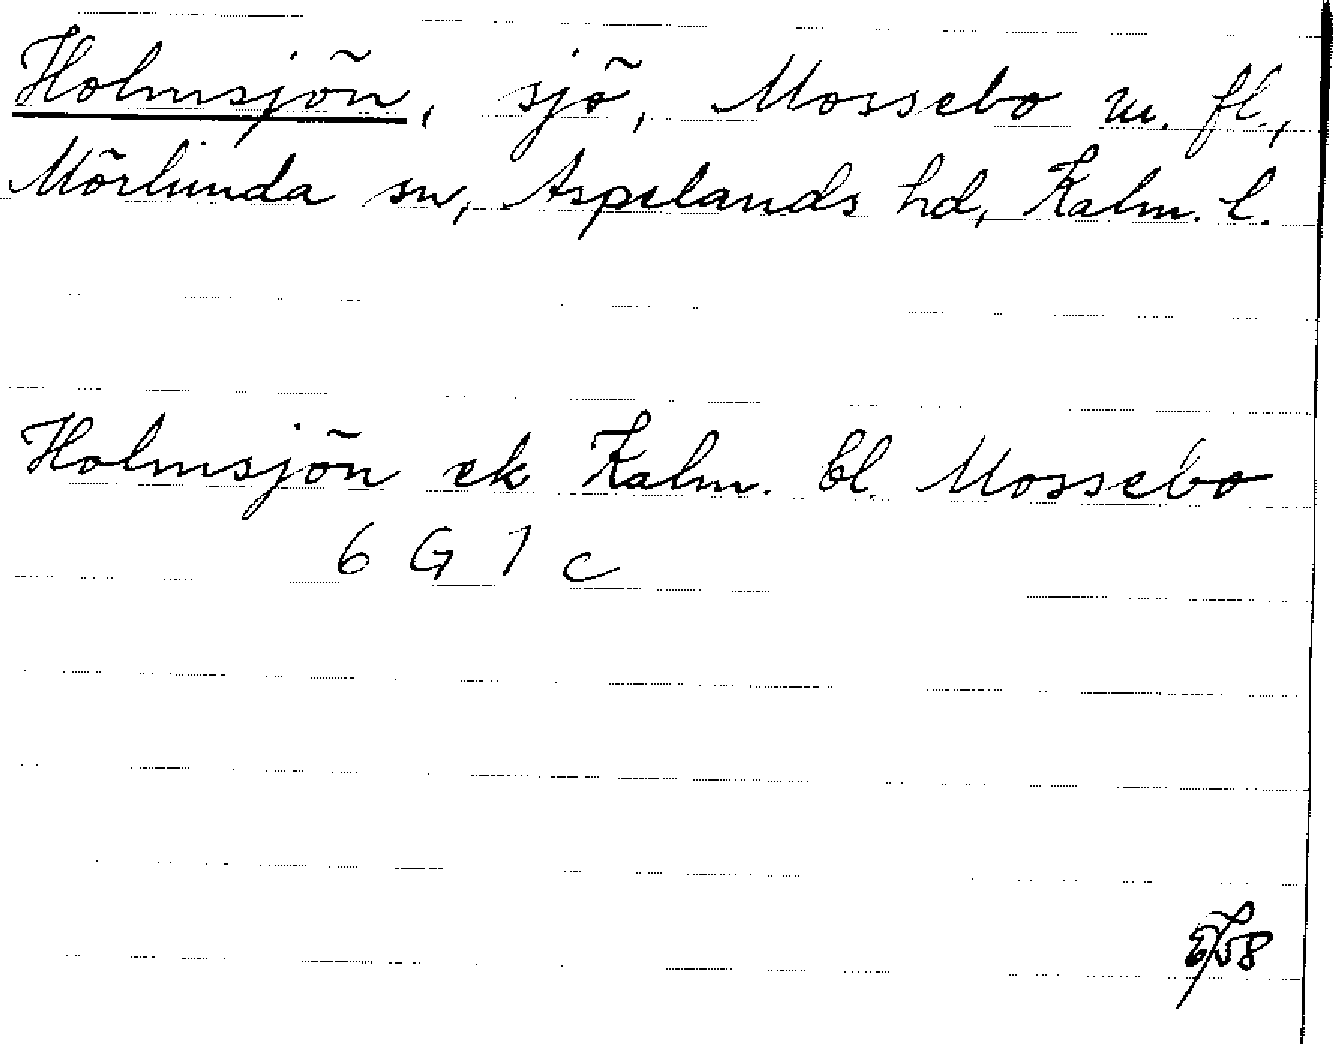 Holmsjön, sjö, Mossebo m. fl.,
Mörlunda sn, Aspelands hd, Kalm. l.
Holmsjön ek Kalm. bl. Mossebo
6 G 1 c